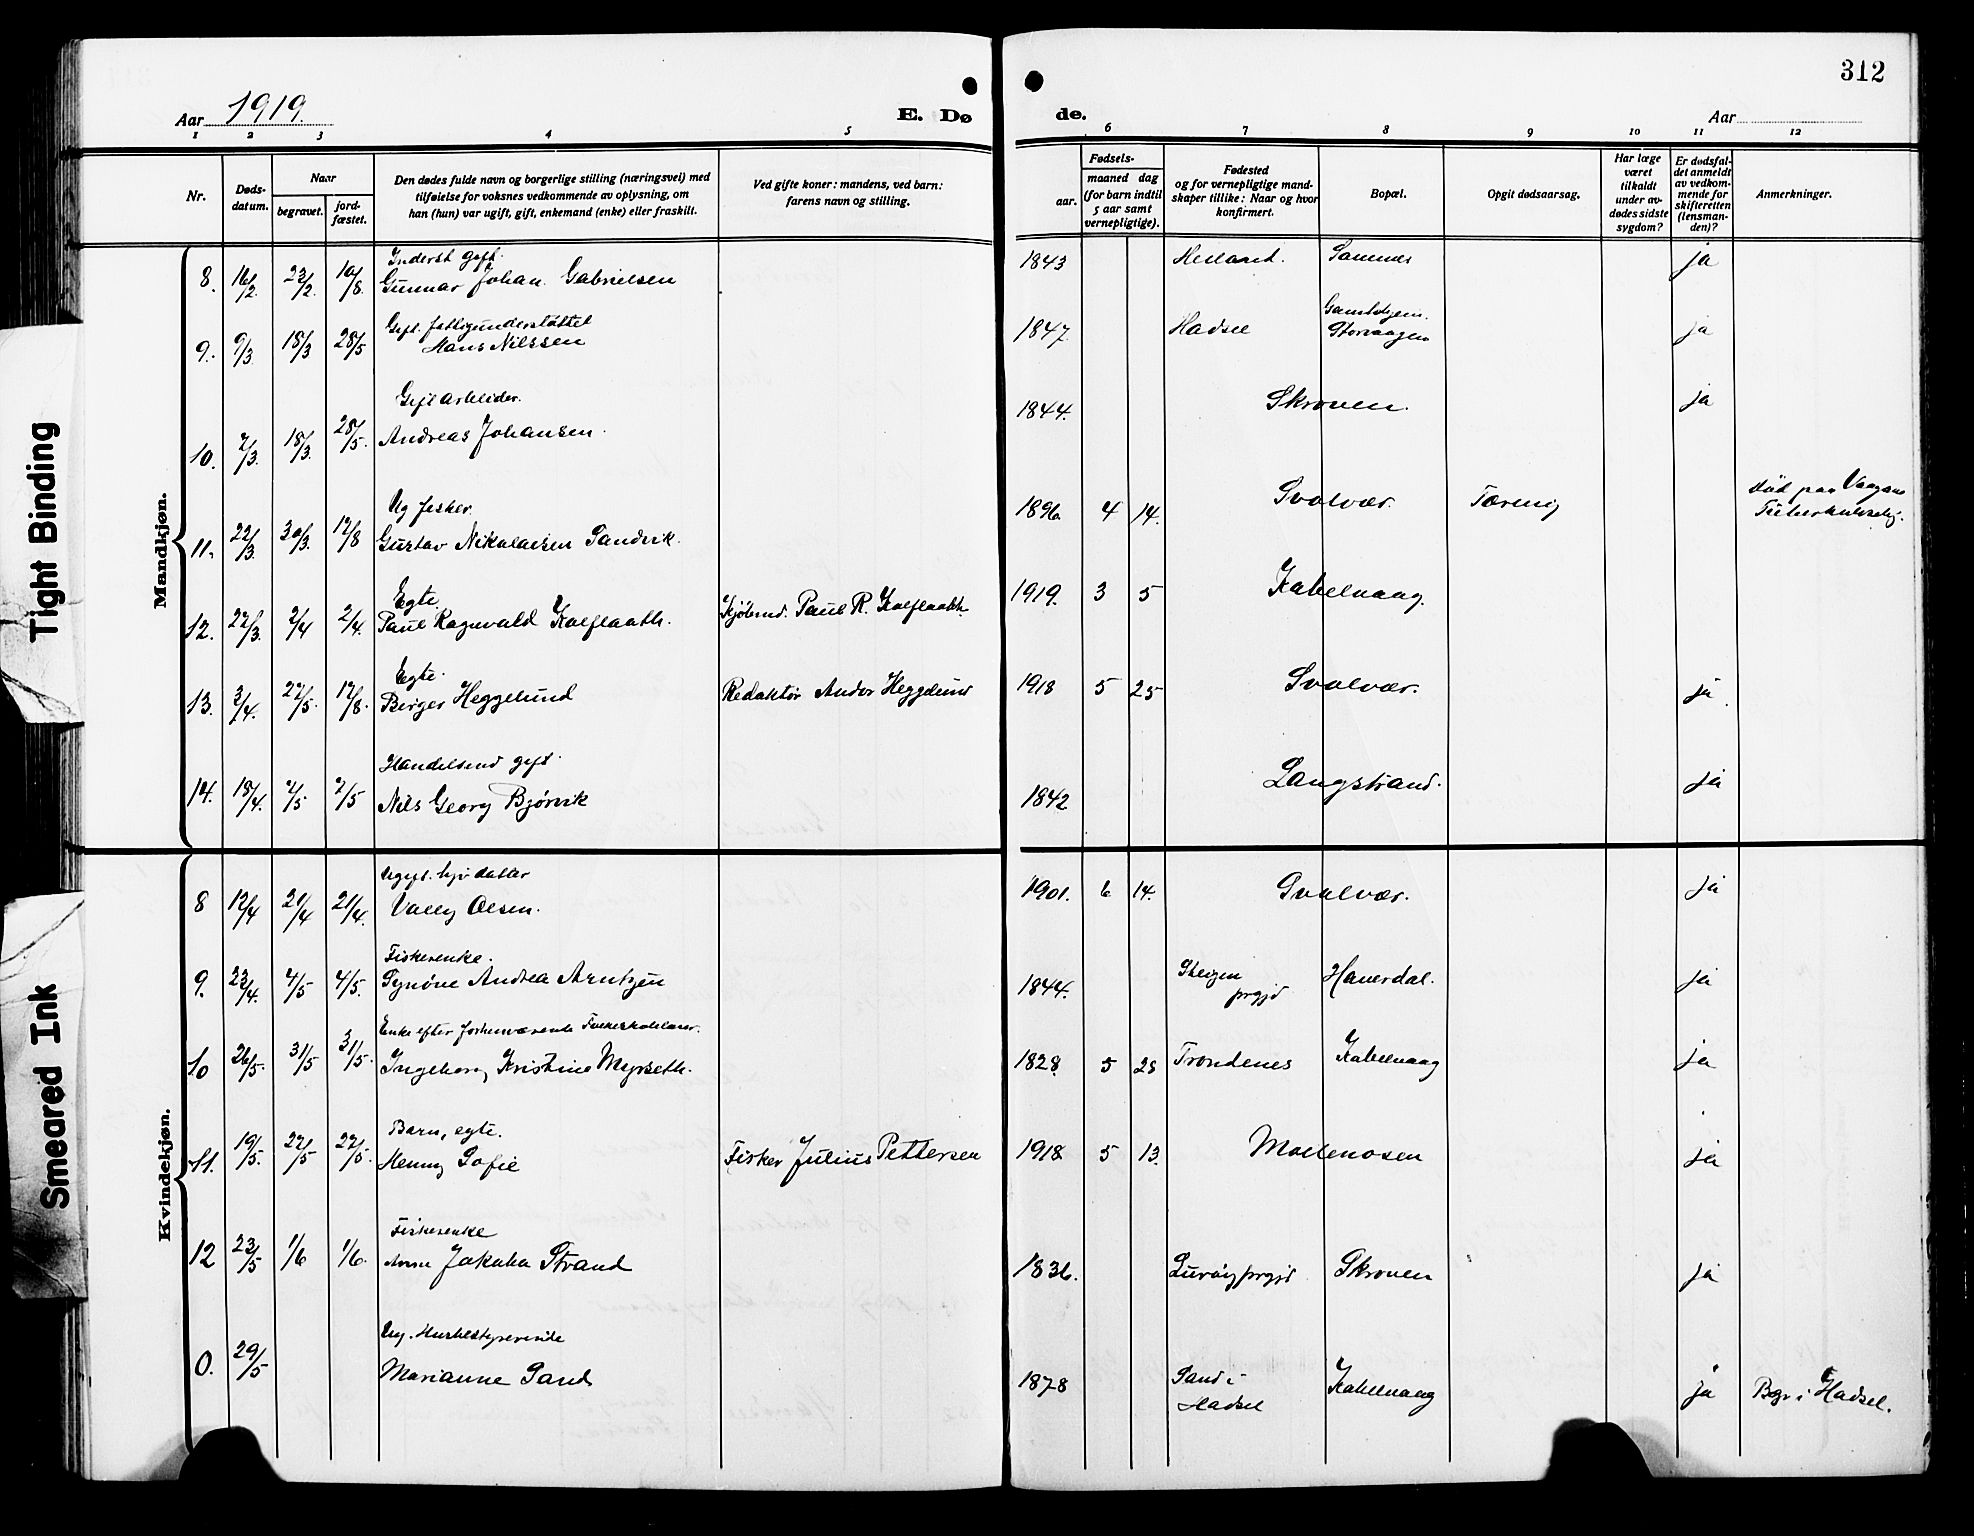 312
Aar 1919.
E. Dø
de.
Aar
1 2 3 4 5 6 7 8 9 10 11 12
Nr.
Døds-
datum.
Naar
begravet.
jord-
fæstet.
Den dødes fulde navn og borgerlige stilling (næringsvei) med
tilføielse for voksnes vedkommende av oplysning, om
han (hun) var ugift, gift, enkemand (enke) eller fraskilt.
Ved gifte koner: mandens, ved barn:
farens navn og stilling.
Fødsels-
aar.
maaned dag
(for barn indtil
5 aar samt
vernepligtige).
Fødested
og for vernepligtige mand-
skaper tillike: Naar og hvor
konfirmert.
Bopæl.
Opgit dødsaarsag.
Har læge
været
tilkaldt
under av-
dødes sidste
sygdom?
Er dødsfal-
det anmeldt
av vedkom-
mende for
skifteretten
(lensman-
den)?
Anmerkninger.
Tight Binding
Smeared Ink
Mandkjøn.
Inderst gift.
8. 16/2 23/2. 10/8 Gunnar Johan Gabrielsen 1843 ja
Gift. fattigunderstøttet
9. 9/3 18/3 28/5 Hans Nilssen 1847 Hadsel Storvaagen ja
Gift Arbeider.
10. 7/3. 18/3. 28/5. Andreas Johansen. 1844. Skroven. ja
Ug fisker.
11. 22/3. 30/3. 12/8 Gustav Nikolaisen Sandvik. 1896 4 14. Svolvær. Tæring død paa Vaagan
Tuberkulosehj.
Egte
12. 22/3. 2/4 2/4. Paul Ragnvald Kalflaath. Kjøbmd. Paul R. Kalflaath 1919. 3 5 Kabelvaag.
Egte.
13. 3/4. 22/5. 12/8. Birger Heggelund Redaktør Andor Heggelund 1918 5 25 Svolvær. ja.
Handelsmd gift.
14. 18/4. 2/5 2/5 Nils Georg Bjørvik 1842 Langstrand. ja
Kvindekjøn.
Ugift. hj. datter
8 12/4 21/4 21/4. Vally Olsen. 1901. 6 14. Svolvær. ja
Fiskerenke.
9. 23/4. 4/5 4/5. Synøve Andrea Arntzen 1844. Steigen
prgjd Haverdal. ja
Enke efter forhenværende Folkeskolelærer.
10 26/5. 31/5 31/5. Ingeborg Kristine Myrseth. 1828. 5 28 Trondenes Kabelvaag ja
Barn, egte.
11. 19/5. 22/5 22/5. Henny Sofie Fisker Julius Pettersen 1918 5 13. Molldnosen ja
Fiskerenke
12 23/5 1/6 1/6. Anne Jakoba Strand 1836. Lurøy prgjd Skroven ja
Ug. Husbestyrerinde
0. 29/5 Marianne Sand 1878 Sand i
Hadsel Kabelvaag ja Bgr i Hadsel.